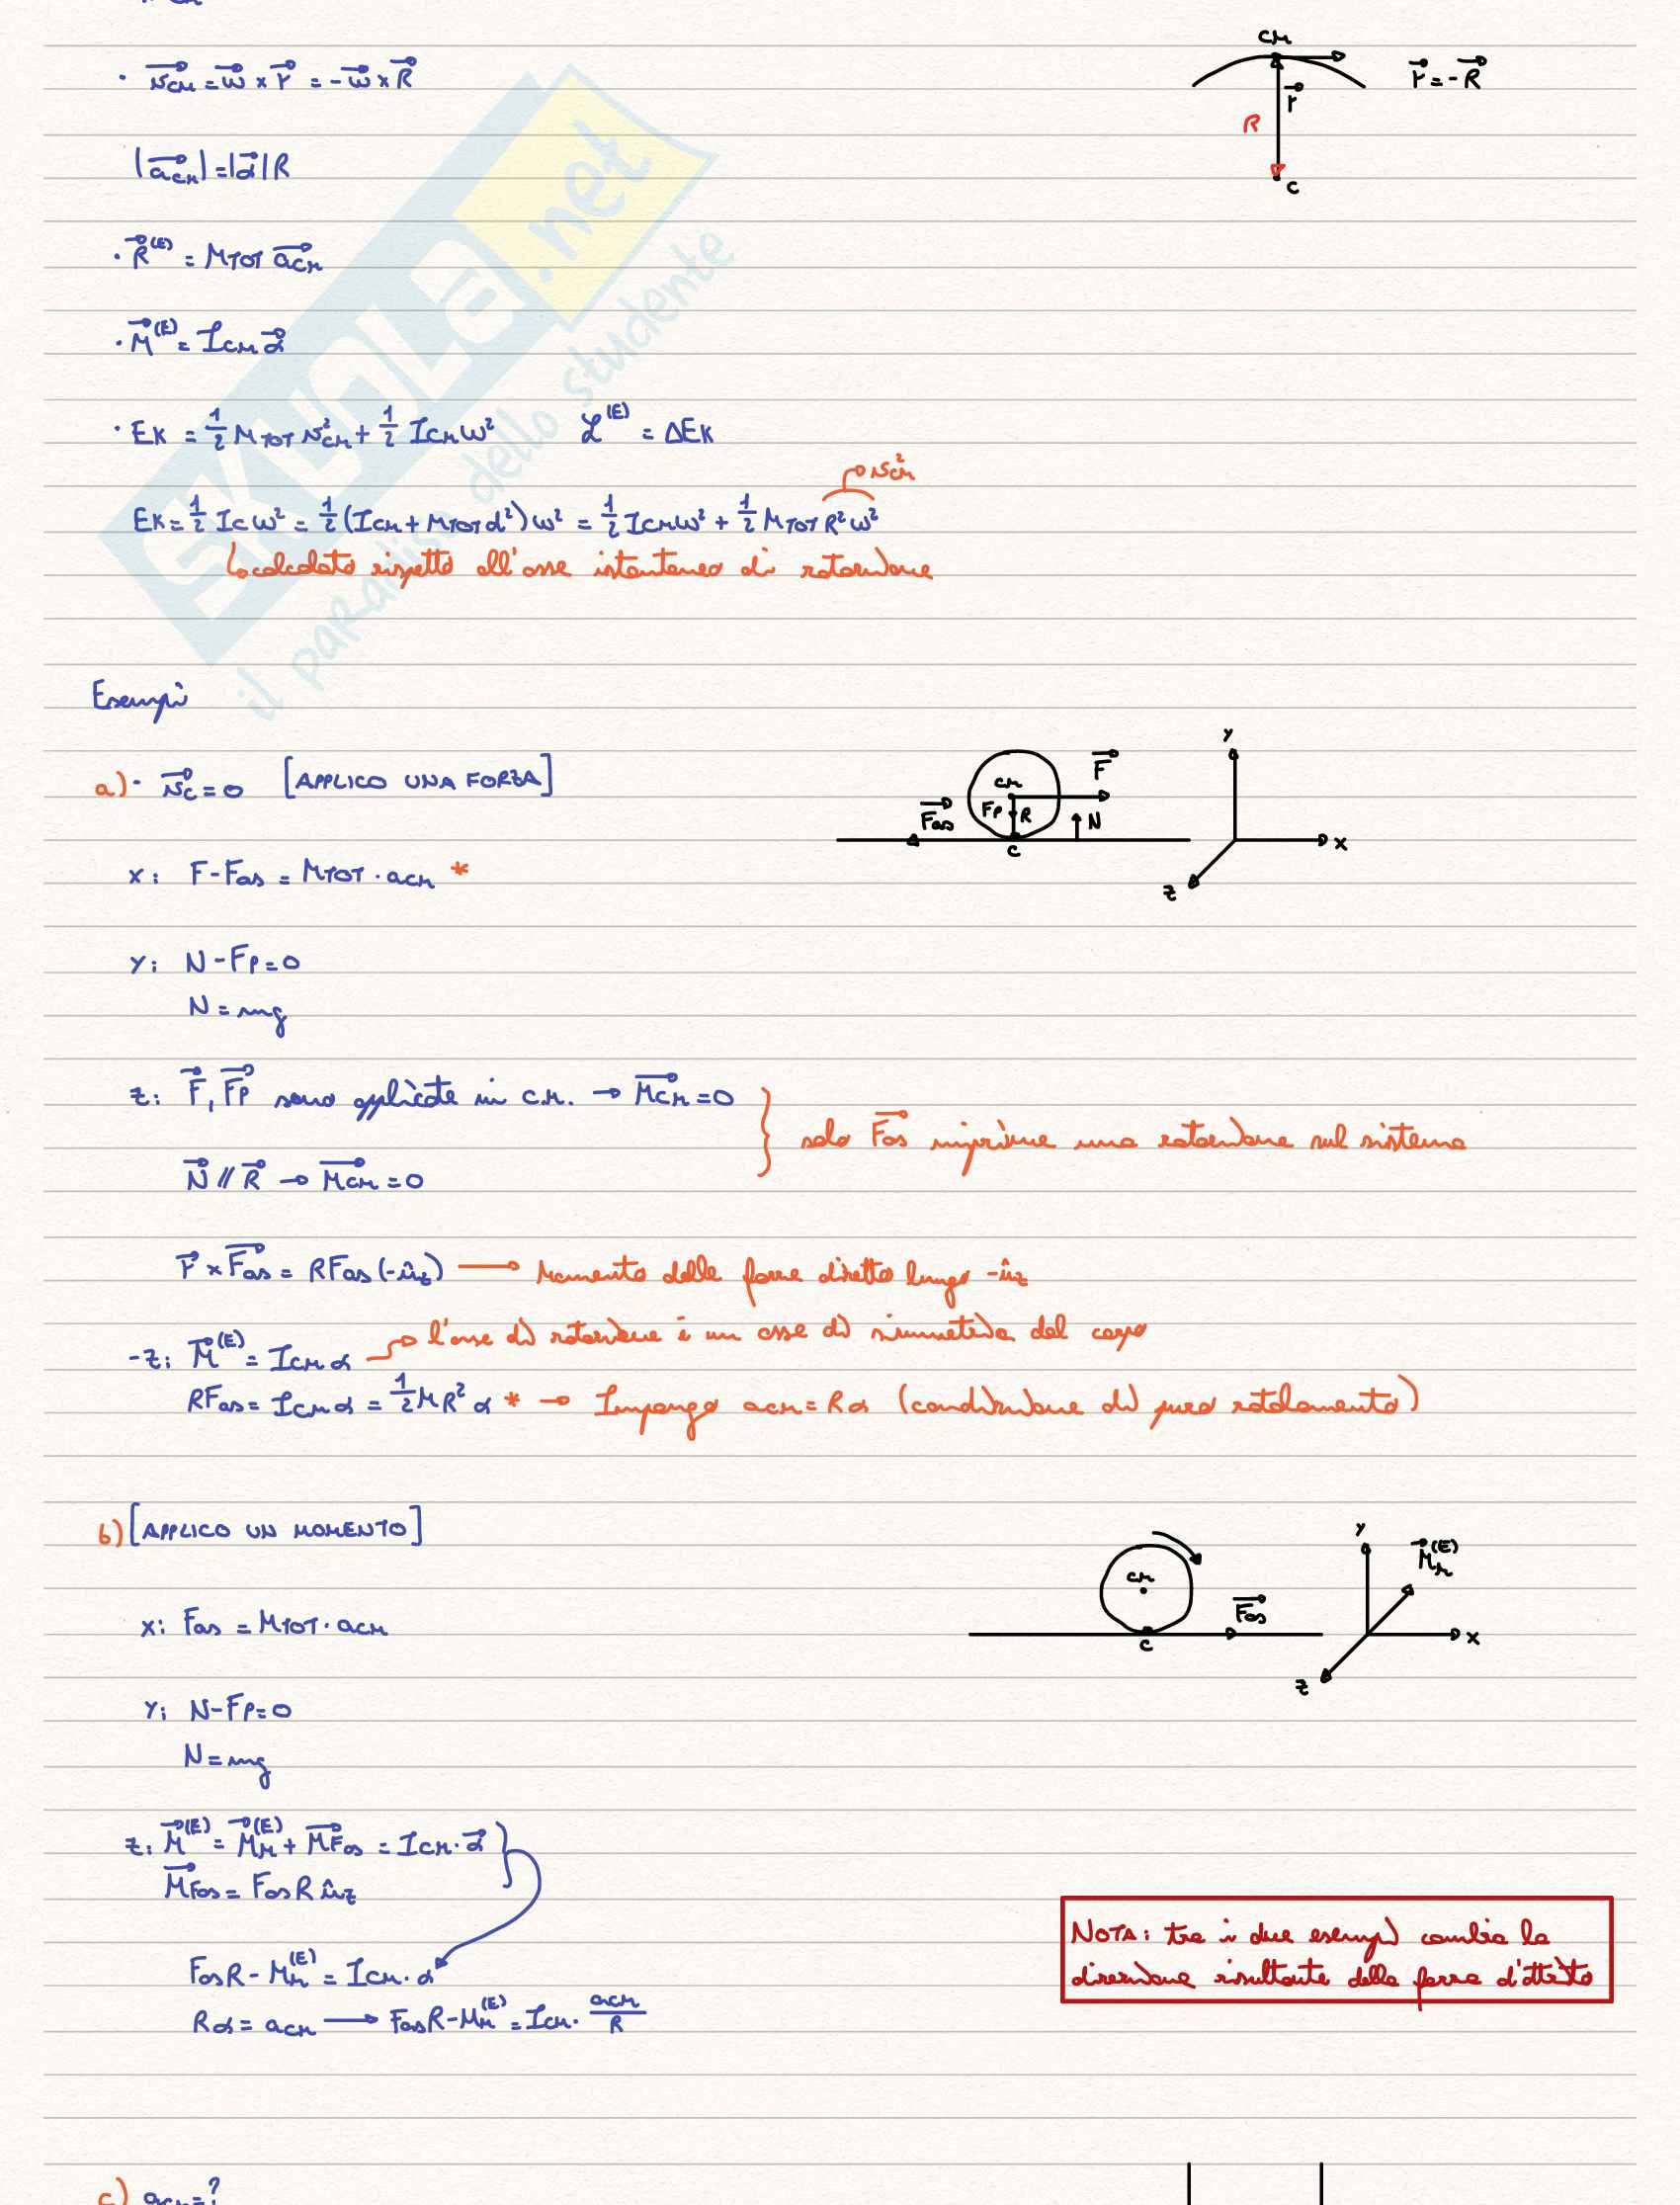 · v⃗cм = ω⃗ × r⃗ = -ω⃗ × R⃗
cм
r⃗
R
c
r⃗ = -R⃗
|a⃗cм| = |α⃗| R
· R⃗⁽ᴱ⁾ = MTOT a⃗cм
· M⃗⁽ᴱ⁾ = Icм α⃗
· EK = 1/2 MTOT v²cм + 1/2 Icм ω² L⁽ᴱ⁾ = ΔEK
v²cм
EK = 1/2 Ic ω² = 1/2 (Icм + MTOT d²) ω² = 1/2 Icм ω² + 1/2 MTOT R² ω²
calcolato rispetto all'asse istantaneo di rotazione
Esempi
a) · v⃗c = 0 [APPLICO UNA FORZA]
F⃗as
cм
Fp
R
F⃗
N
c
y
x
z
x: F - Fas = MTOT · acм *
y: N - Fp = 0
N = mg
z: F⃗, F⃗p sono applicate in c.м. → M⃗cм = 0
N⃗ // R⃗ → M⃗cм = 0
solo F⃗as imprime una rotazione sul sistema
r⃗ × F⃗as = R Fas (-ûz) → Momento delle forze diretto lungo -ûz
-z: M⃗⁽ᴱ⁾ = Icм α → l'asse di rotazione è un asse di simmetria del corpo
R Fas = Icм α = 1/2 M R² α * → Impongo acм = Rα (condizione di puro rotolamento)
b) [APPLICO UN MOMENTO]
cм
c
F⃗as
y
x
z
M⃗м⁽ᴱ⁾
x: Fas = MTOT · acм
y: N - Fp = 0
N = mg
z: M⃗⁽ᴱ⁾ = M⃗м⁽ᴱ⁾ + M⃗Fas = Icм · α⃗
M⃗Fas = Fas R ûz
Fas R - Mм⁽ᴱ⁾ = Icм · α
Rα = acм → Fas R - Mм⁽ᴱ⁾ = Icм · acм/R
NOTA: tra i due esempi cambia la
direzione risultante della forza d'attrito
c) acм = ?
SKUOLA.net
il paradiso dello studente